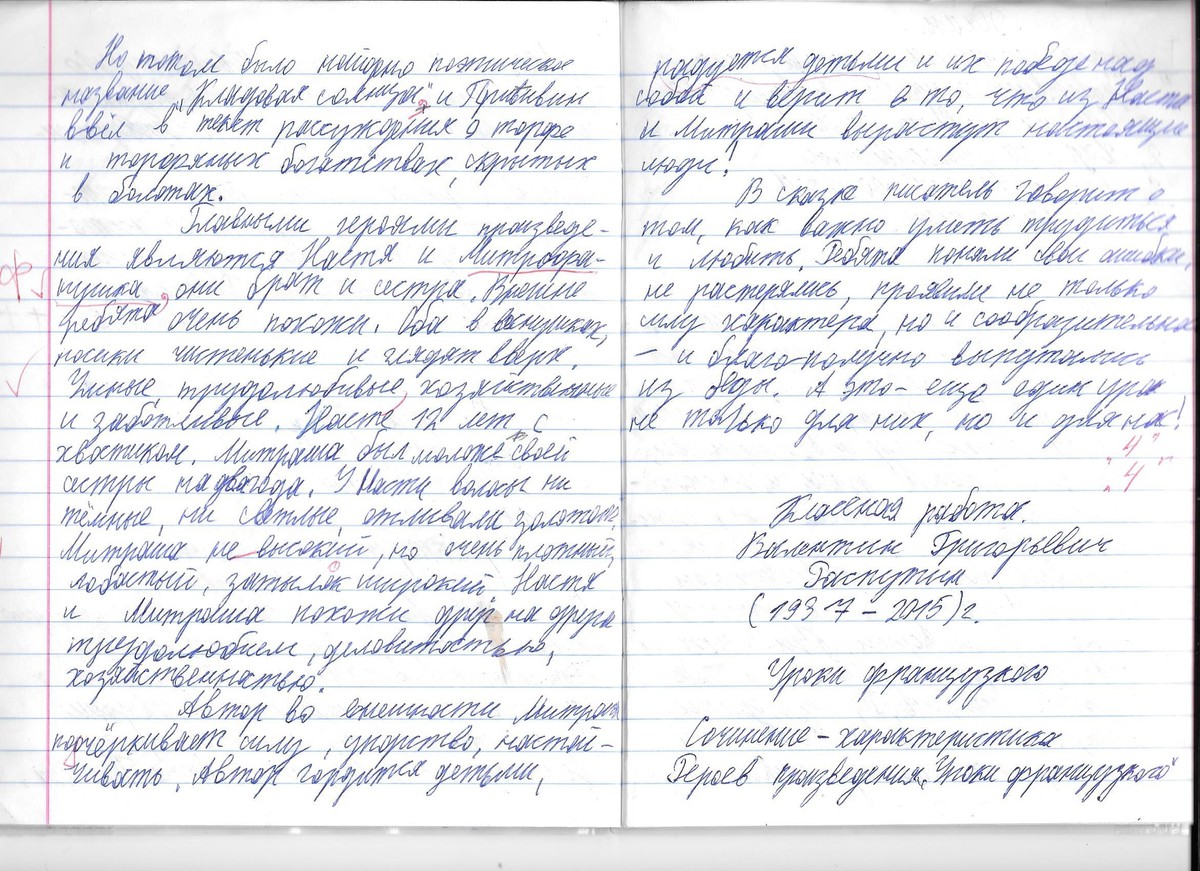 Но потом было найдено поэтическое
название „Кладовая солнца" и Пришвин
ввёл в текст рассуждения о торфе
и торфяных богатствах, скрытых
в болотах.
Главными героями произведе-
ния являются Настя и Митрофа-
нушка, они брат и сестра. Внешне
ребята очень похожи. Оба в веснушках,
носики чистенькие и глядят вверх.
Умные, трудолюбивые, хозяйственные
и заботливые. Насте 12 лет, с
хвостиком. Митраша был моложе своей
сестры на два года. У Насти волосы ни
тёмные, ни светлые, отливали золотом.
Митраша не высокий, но очень плотный,
лобастый, затылок широкий. Настя
и Митраша похожи друг на друга
трудолюбием, деловитостью,
хозяйственностью.
Автор во внешности Митраши
подчёркивает силу, упорство, настой-
чивать. Автор гордится детьми,
радуется детьми и их победе над
собой и верит в то, что из Насти
и Митраши вырастут настоящие
люди!
В сказке писатель говорит о
том, как важно уметь трудиться
и любить. Ребята поняли свои ошибки,
не растерялись, проявили не только
силу характера, но и сообразительнос
– и благо-получно выпутались
из беды. А это - еще один урок
не только для них, но и для нас!
„4"
„4"
Классная работа.
Валентин Григорьевич
Распутин
(1937 – 2015) г.
Уроки французкого
Сочинение – характеристика
Героев произведения „Уроки французкого"
Ф